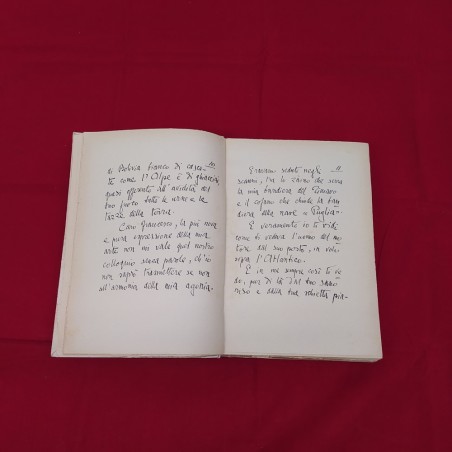 di Bolivia bianco di casca-
te come l'Alpe è di ghiacciai,
quasi offerente all'avidità del
tuo fuoco tutte le vene e la
della terra
Caro Francesco, la più nova
e pura espressione della mia
arte non mi vale quel nostro
colloquio senza parole, ch'io
non saprò trasmettere se non
all'armonia della mia agonia.
Eravamo seduti negli
scanni, tra lo che serra
la mia bandiera del Timavo
e il cofano che chiude la ban-
diera della nave "Puglia".
E veramente io ti vidi
come ti vedeva l'uomo del mo-
tore dal suo posto, in volo
sopra l'Atlantico.
E in me sempre così ti ve-
do, pur di là dal tuo sano
riso e dalla tua schietta pia-